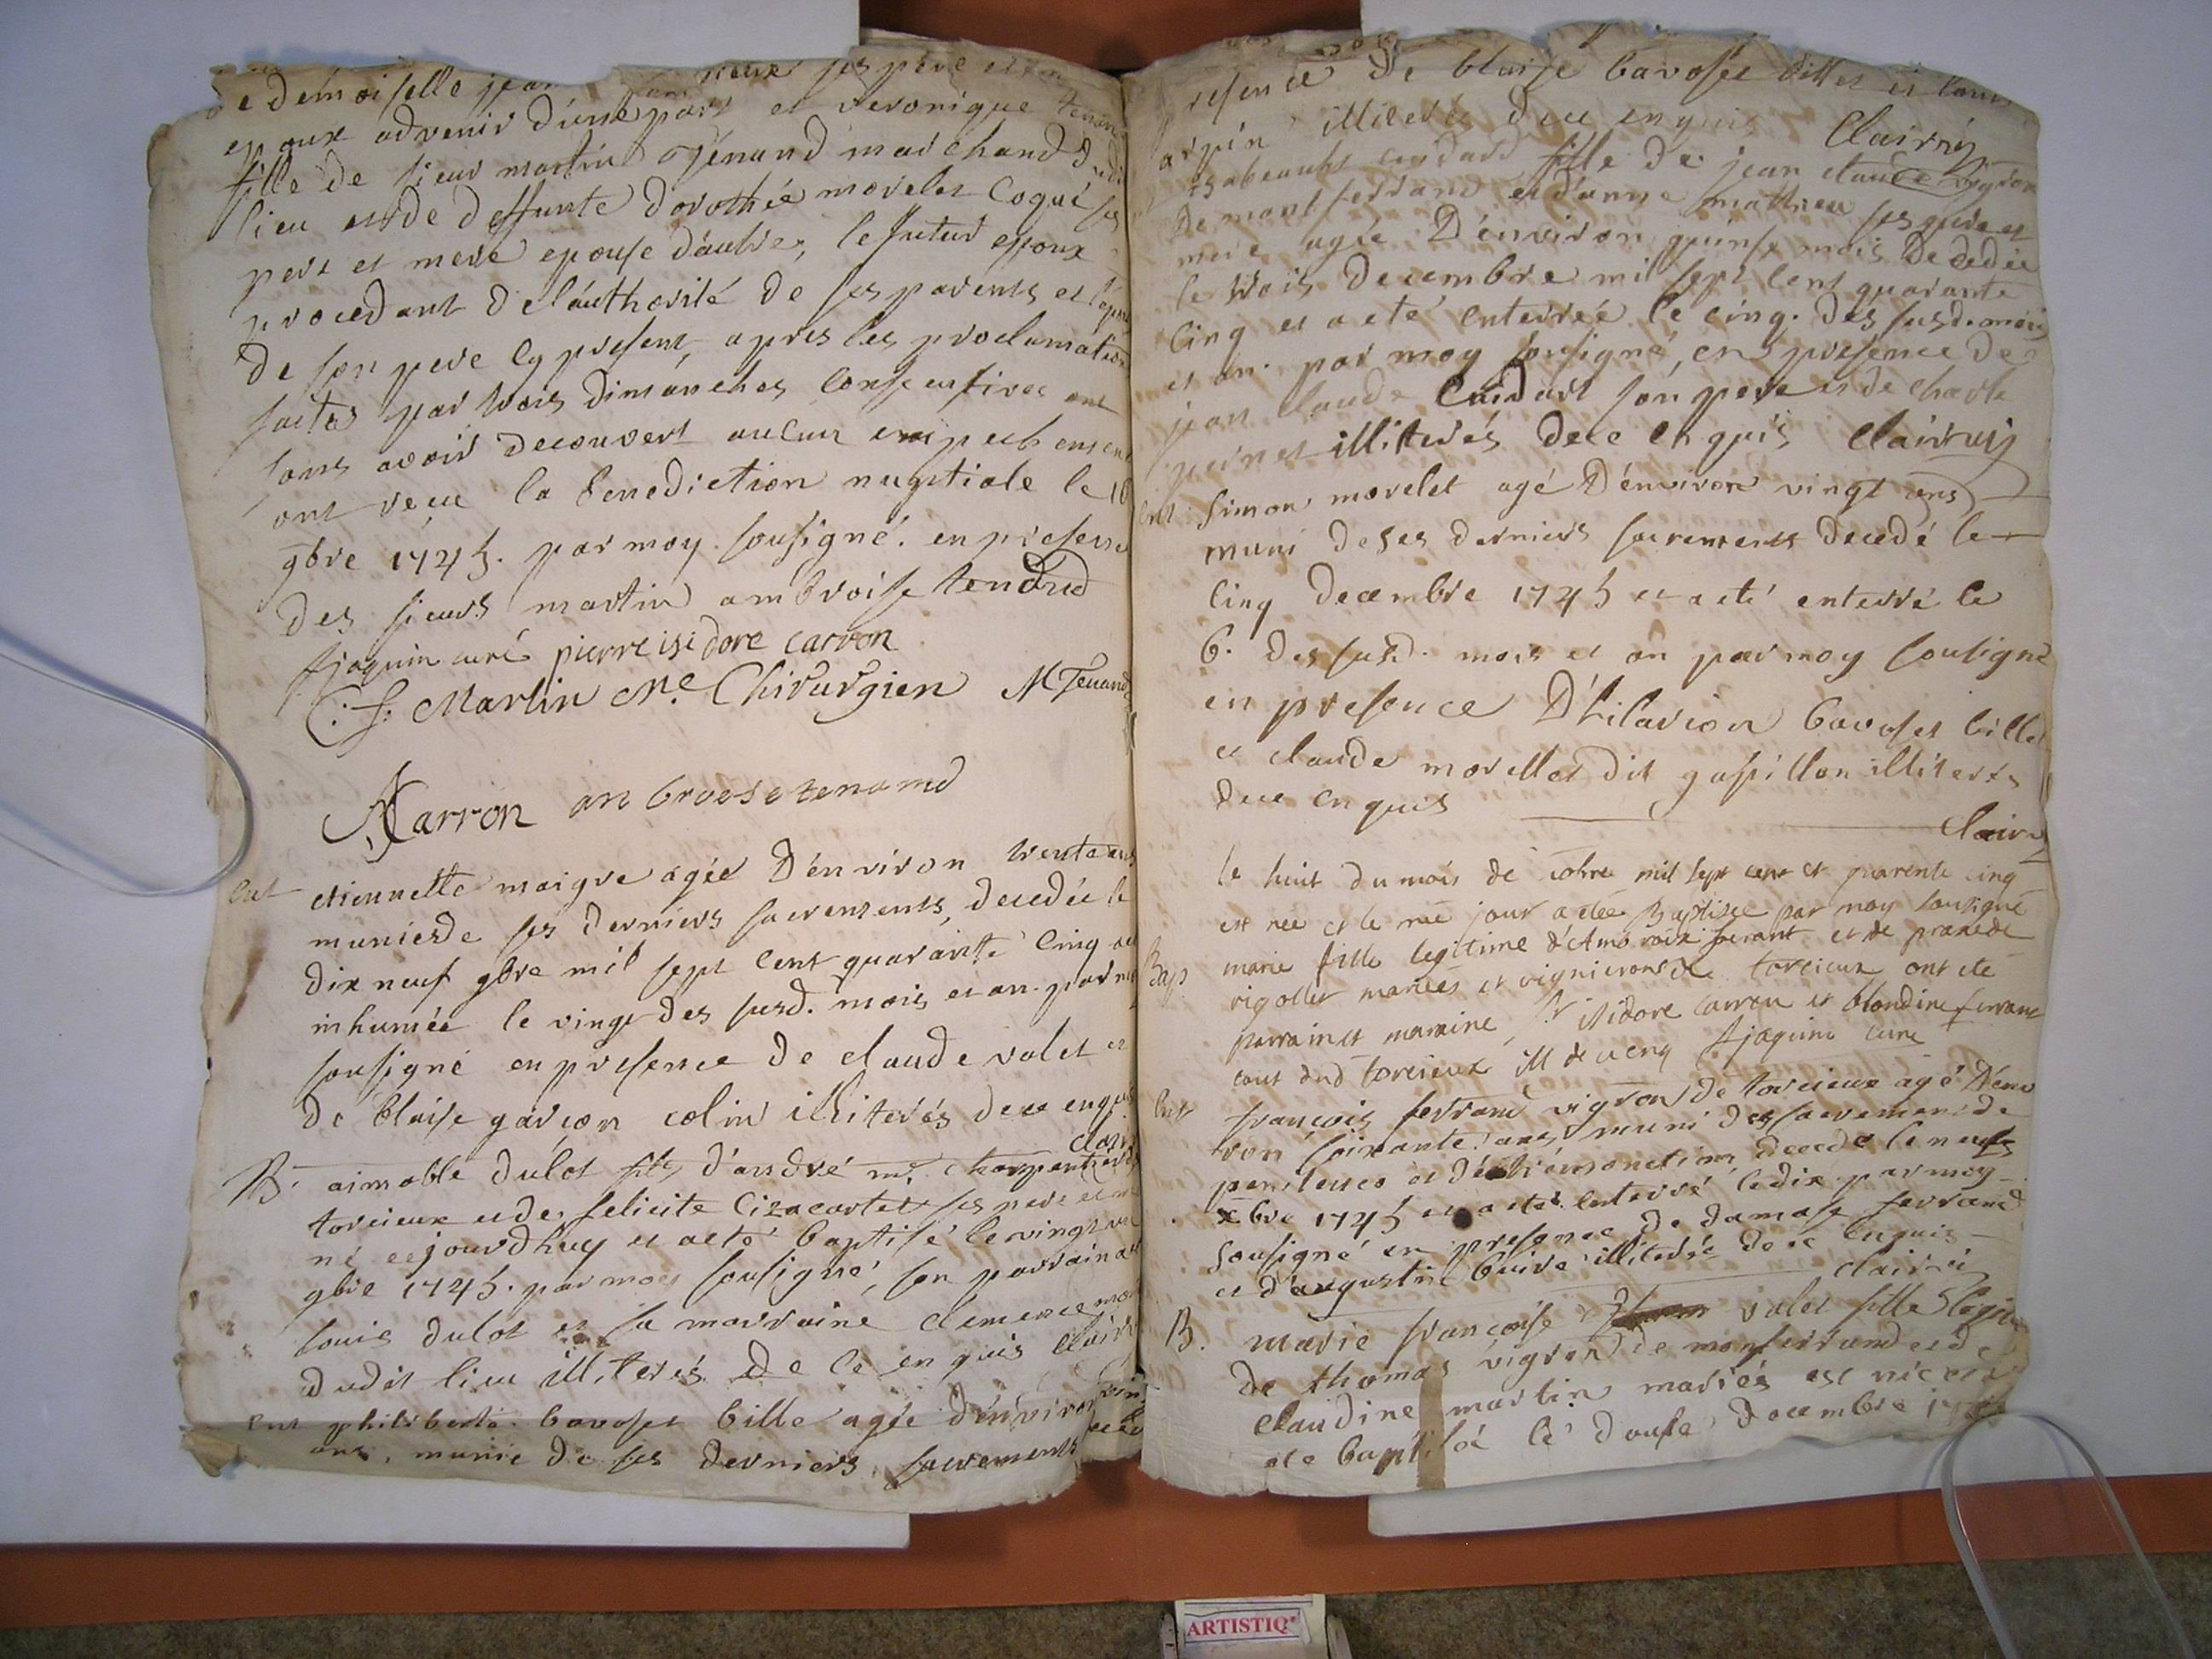 de demoiselle jean sieux ses pere et
epoux advenir d'une part et veronique tenan
fille de sieur martin Tenand marchand du
lieu et de deffunte dorothée morelet coqué ses
pere et mere epouse d'autre, le futur epoux
procedant de l'authorité de ses parents et l'epou
de son pere cy present, apres les proclamations
faites par trois dimanches consecutives
sans avoir decouvert aucun empechement
ont reçu la benediction nuptiale le 16
9bre 1745. par moy sousigné. en presence
des sieurs martin ambroise tenand
fjaquin curé pierre isidore carron
C: f: Martin Me Chirurgien M Tenand
Carron anbroese tenamd
ent etiennette maigre agée d'environ trente ans
munie de ses derniers sacrements, decedée le
dix neuf 9bre mil sept cent quarante cinq
inhumée le vingt des susd. mois et an par moy
sousigné en presence de claude valet et
de blaise garçon colin illiterés de ce enquis
clair
B. aimable dulot fils d'andré me charpentier
torcieux et de felicite Cizacartet ses pere et m
né cejourdhuy et a eté baptisé le vingt
9bre 1745. par moy sousigné, son parrain a
louis dulot et sa marraine clemence mo
dudit lieu illiterés de ce enquis clair
ent philiberte bavoset bille agée d'environ vin
ans, munie de ses derniers sacrements
presence de blaise bavoset billet et
arpin illiterés de ce enquis Clairny
isabeaubt cudard fille de jean claude vigron
de montferrand et d'anne mathieu ses pere et
mere agée d'environ quinse mois decedée
le trois decembre mil sept cent quarante
cinq et a eté enterrée le cinq. des susd. mois
et an. par moy sousigné, en presence de
jean claude Cudard son pere et de charle
pernet illiterés de ce enquis Clairny
ent. Simon morelet agé d'environ vingt ans
muni de ses derniers sacrements decedé le
cinq decembre 1745 et a eté enterré le
6. des susd. mois et an par moy sousigné
en presence d'hilarion bavoset bille
et claude morellet dit gaspillon illiterés
de ce enquis
Clairny
le huit du mois de xbre mil sept cent et quarente cinq
est née et le mê jour a eteé Baptisee par moy sousigne
Bap. marie fille legitime d'Amb roix ferrant et de praxede
rigollet mariés et vignierons de torcieux ont ete
parrain et maraine Sr isidore carron et blondine ferrant
tout dud torcieux ill de ce enq fjaquin curé
ent françois ferrand vigron de torcieux agé d'env
iron soixante ans muni des sacremens de
penitence et d'extremonction decedé le neuf
xbre 1745 et a eté enterré le dix par moy
sousigné en presence de damase ferrand
et d'augustin buire illiterés de ce enquis
clairny
B. marie françoise valet fille legit
de thomas vigron de monferrand et de
claudine martin mariés est née et a
ete baptisée le douse decembre 1745
ARTISTIQ